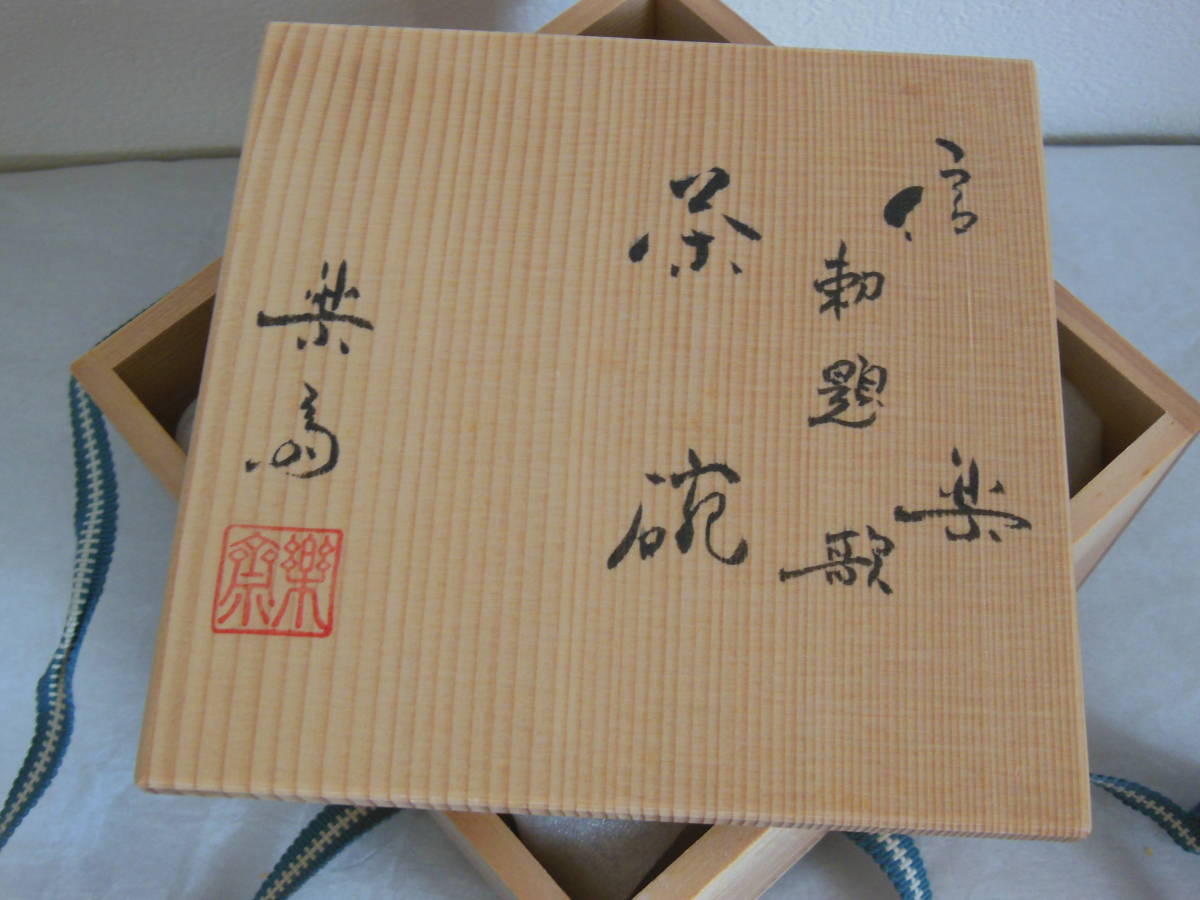 信楽
勅題歌
茶碗
楽斎
樂齋